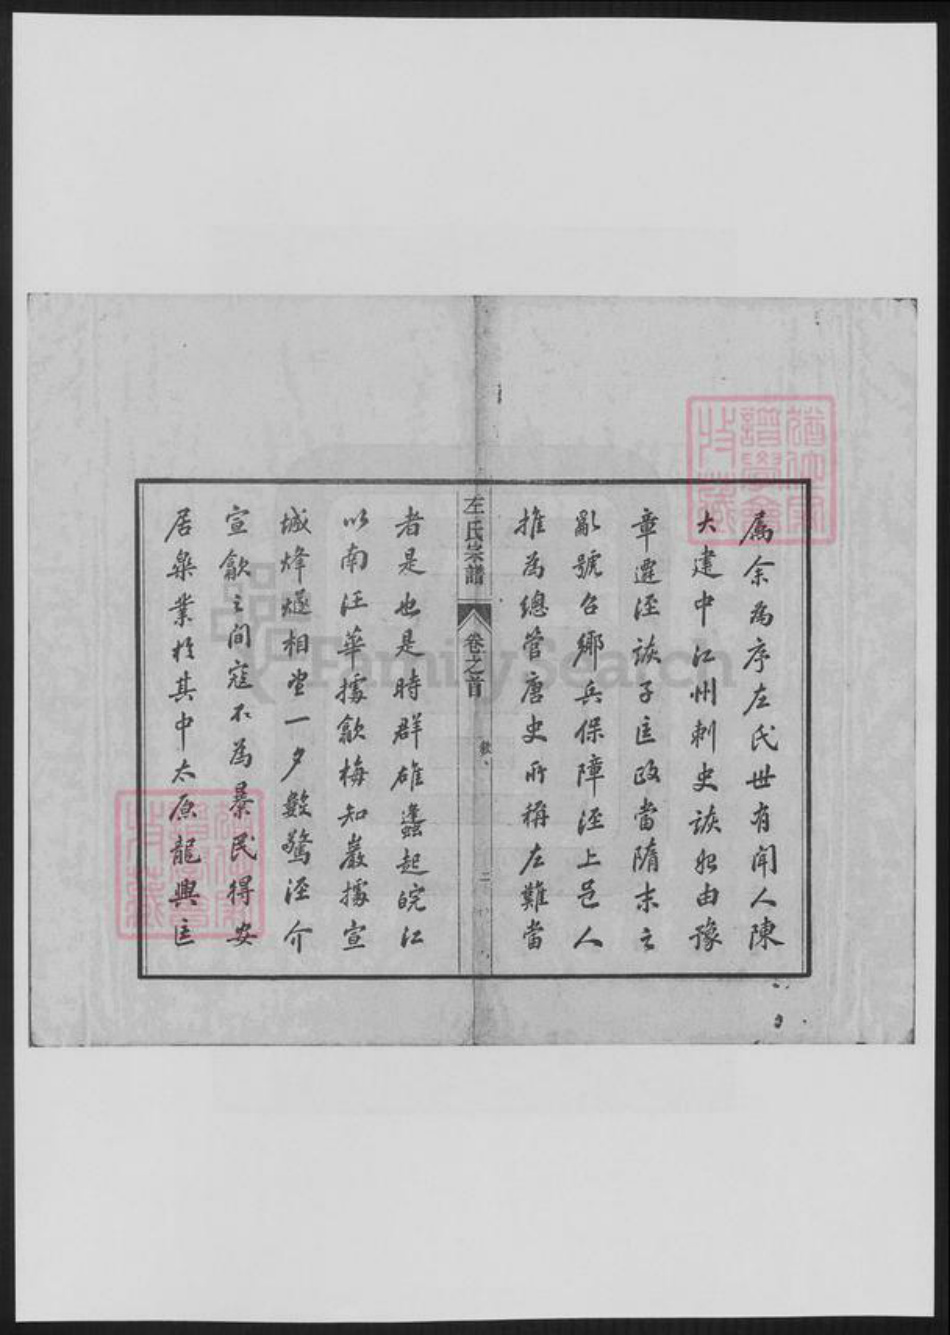 屬余為序左氏世有聞人陳
大建中江州刺史詼始由豫
章遷涇詼子匡政當隋末之
亂號召鄉兵保障涇上邑人
推為總管唐史所稱左難當
左氏宗譜 卷之首 敘 二
者是也是時群雄蠭起皖江
以南汪華據歙梅知巖據宣
城烽燧相望一夕數驚涇介
宣歙之間寇不為暴民得安
居樂業於其中太原龍興匡
FamilySearch